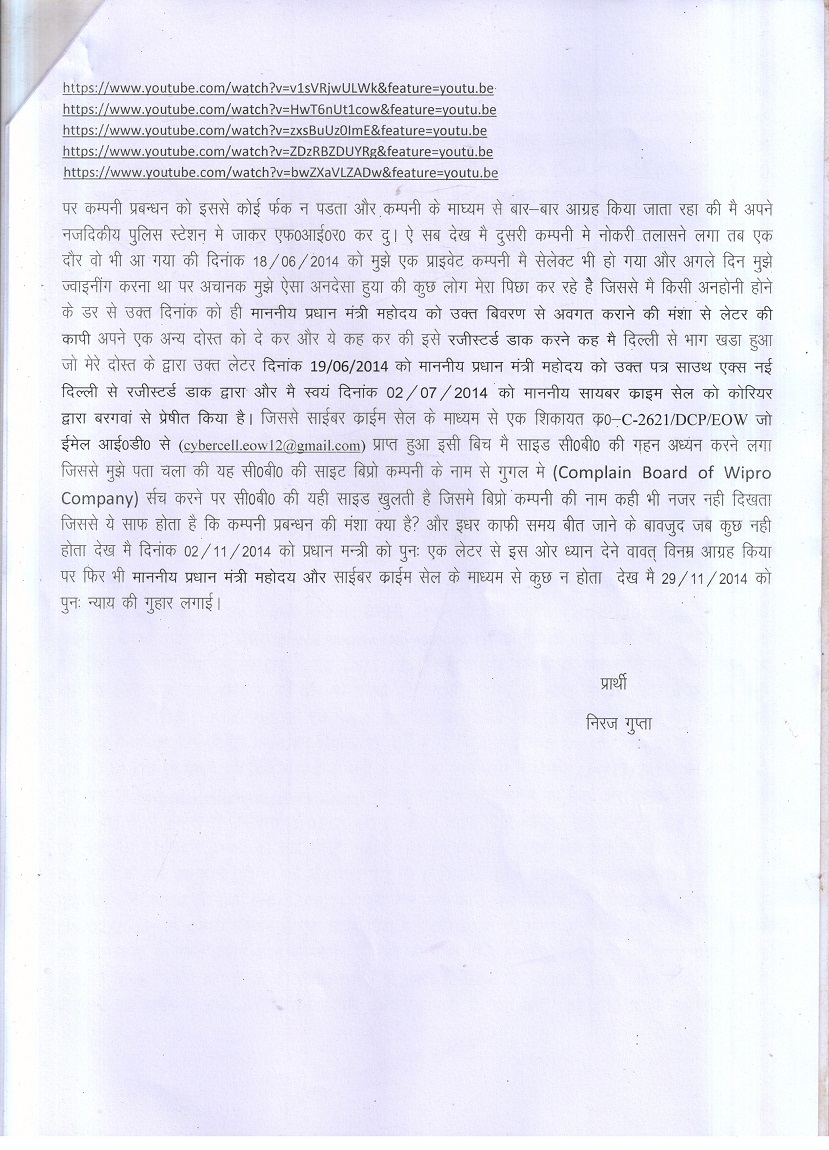 https://www.youtube.com/watch?v=v1sVRjwULWk&feature=youtu.be
https://www.youtube.com/watch?v=HwT6nUt1cow&feature=youtu.be
https://www.youtube.com/watch?v=zxsBuUz0ImE&feature=youtu.be
https://www.youtube.com/watch?v=ZDzRBZDUYRg&feature=youtu.be
https://www.youtube.com/watch?v=bwZXaVLZADw&feature=youtu.be
पर कम्पनी प्रबन्धन को इससे कोई र्फक न पडता और कम्पनी के माध्यम से बार–बार आग्रह किया जाता रहा की मै अपने
नजदिकीय पुलिस स्टेशन मे जाकर एफ0आई0र0 कर दु। ऐ सब देख मै दुसरी कम्पनी मे नोकरी तलासने लगा तब एक
दौर वो भी आ गया की दिनांक 18/06/2014 को मुझे एक प्राइवेट कम्पनी मै सेलेक्ट भी हो गया और अगले दिन मुझे
ज्वाइनींग करना था पर अचानक मुझे ऐसा अनदेसा हुया की कुछ लोग मेरा पिछा कर रहे है जिससे मै किसी अनहोनी होने
के डर से उक्त दिनांक को ही माननीय प्रधान मंत्री महोदय को उक्त बिवरण से अवगत कराने की मंशा से लेटर की
कापी अपने एक अन्य दोस्त को दे कर और ये कह कर की इसे रजीस्टर्ड डाक करने कह मै दिल्ली से भाग खडा हुआ
जो मेरे दोस्त के द्वारा उक्त लेटर दिनांक 19/06/2014 को माननीय प्रधान मंत्री महोदय को उक्त पत्र साउथ एक्स नई
दिल्ली से रजीस्टर्ड डाक द्वारा और मै स्वयं दिनांक 02/07/2014 को माननीय सायबर क्राइम सेल को कोरियर
द्वारा बरगवां से प्रेषीत किया है। जिससे साईबर क्राईम सेल के माध्यम से एक शिकायत क्र0–C-2621/DCP/EOW जो
ईमेल आई0डी0 से (cybercell.eow12@gmail.com) प्राप्त हुआ इसी बिच मै साइड सी0बी0 की गहन अध्यंन करने लगा
जिससे मुझे पता चला की यह सी0बी0 की साइट बिप्रो कम्पनी के नाम से गुगल मे (Complain Board of Wipro
Company) र्सच करने पर सी0बी0 की यही साइड खुलती है जिसमे बिप्रो कम्पनी की नाम कही भी नजर नही दिखता
जिससे ये साफ होता है कि कम्पनी प्रबन्धन की मंशा क्या है? और इधर काफी समय बीत जाने के बावजुद जब कुछ नही
होता देख मै दिनांक 02/11/2014 को प्रधान मन्त्री को पुनः एक लेटर से इस ओर ध्यान देने वावत् विनम्र आग्रह किया
पर फिर भी माननीय प्रधान मंत्री महोदय और साईबर क्राईम सेल के माध्यम से कुछ न होता देख मै 29/11/2014 को
पुनः न्याय की गुहार लगाई।
प्रार्थी
निरज गुप्ता